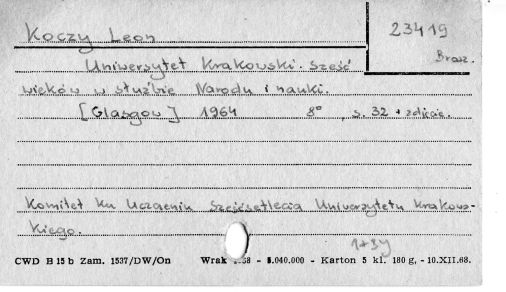 Koczy Leon
23419
Brosz.
Uniwersytet Krakowski. Sześć
wieków w służbie Narodu i nauki.
[Glasgow] 1964 8° , s. 32 + zdjęcie.
Komitet ku Uczczeniu Sześćsetlecia Uniwersytetu Krakows-
kiego.
CWD B 15 b Zam. 1537/DW/On Wrak - 5.040.000 - Karton 5 kl. 180 g, - 10.XII.68.